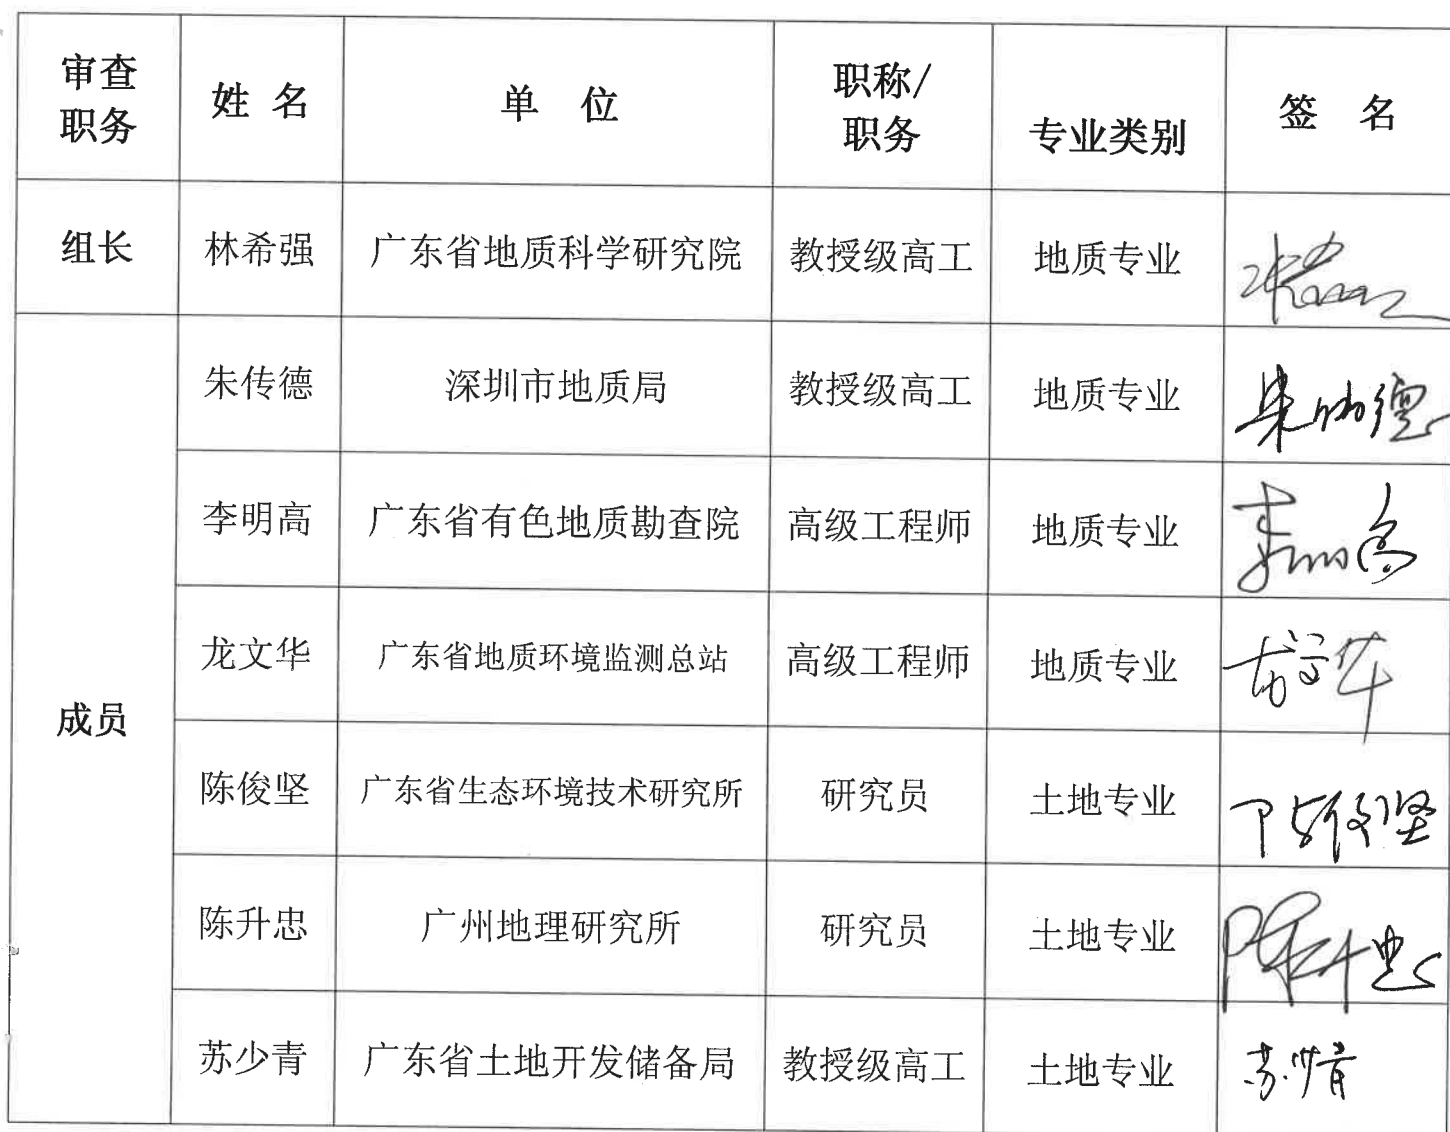 审查职务 姓 名 单 位 职称/职务 专业类别 签 名
组长 林希强 广东省地质科学研究院 教授级高工 地质专业
成员 朱传德 深圳市地质局 教授级高工 地质专业 朱传德
李明高 广东省有色地质勘查院 高级工程师 地质专业 李明高
龙文华 广东省地质环境监测总站 高级工程师 地质专业 龙文华
陈俊坚 广东省生态环境技术研究所 研究员 土地专业 陈俊坚
陈升忠 广州地理研究所 研究员 土地专业 陈升忠
苏少青 广东省土地开发储备局 教授级高工 土地专业 苏少青